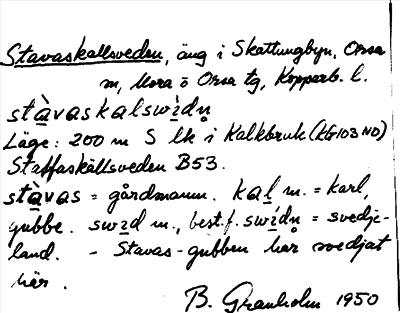 Stavaskallsveden, äng i Skattungbyn, Orsa
m, Mora o Orsa tg, Kopparb. l.
stàvaskalswìdn̥
Läge: 200 m S lk i Kalkbruk (KG103 NO)
Staffaskällsveden B53.
stàvas = gårdnamn. kal m. = karl,
gubbe. swid m., best. f. swídn̥ = svedje-
land. - Stavas-gubben har svedjat
här.
B. Granholm 1950